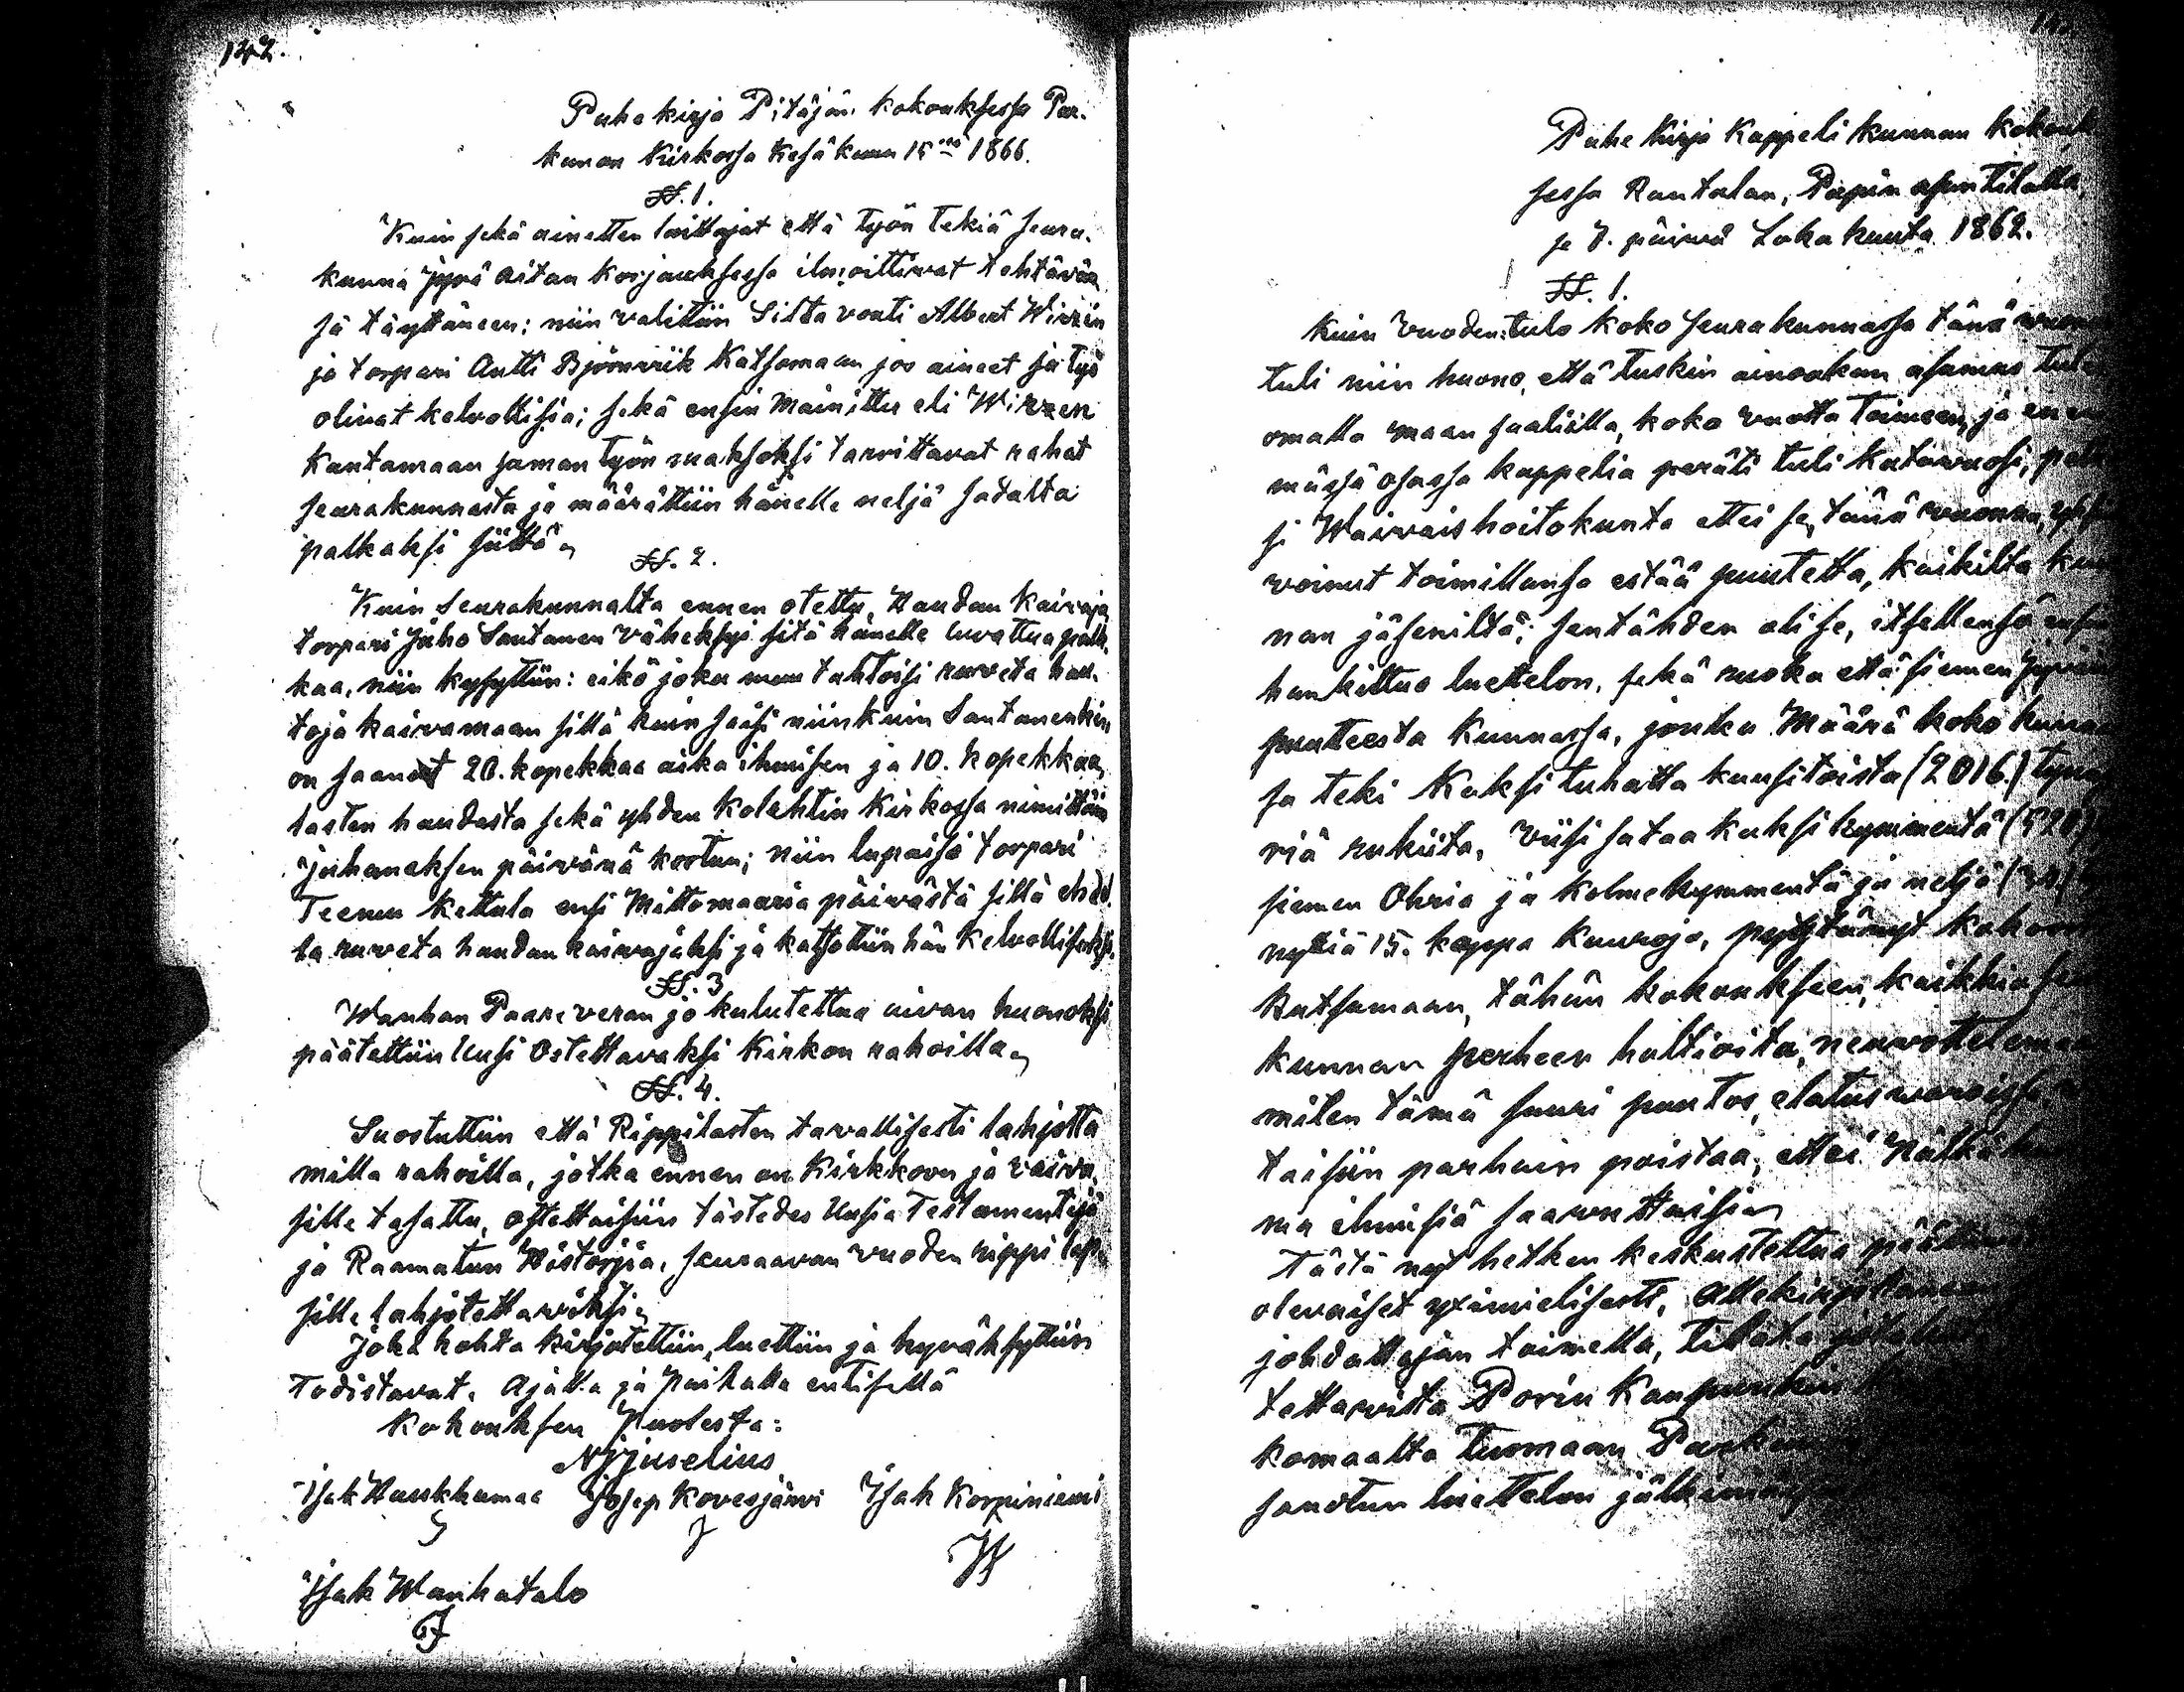 142.
Puhe kirja Pitäjän kokouksessa Par-
kanon Kirkossa Kesäkuun 15nä 1866.
§§. 1.
Kuin sekä ainetten laittajat että työn tekiä seura-
kunna Jyvä aitan korjauksessa ilmoittivat tehtävän
sä täyttäneen; niin valittiin Silta vouti Albert Wirzén
ja torpari Antti Björnvik Katsomaan jos aineet ja työ
olivat kelvollisia; sekä ensin Mainittu eli Wirzen
Kantamaan saman työn maksoksi tarvittavat rahat
seurakunnasta ja määrättiin hänelle neljä sadalta
palkaksi siittä.
§§. 2.
Kuin Seurakunnalta ennen otettu, Haudan kaivaja
torpari Juho Santanen väheksyi sitä hänelle luvattua palk-
kaa, niin kysyttiin: eikö joku muu tahtoisi ruveta hau-
toja kaivamaan sillä kuin saisi niinkuin Santanenkin
on saanut 20. kopekkaa aika ihmisen ja 10. kopekkaa
lasten haudasta sekä yhden Kolehtin Kirkossa nimittäin
Juhaneksen päivänä kootun; niin lupaisi torpari
Teemu Kettula ensi Mittomaaria päivästä sillä ehdol-
la ruveta haudan kaivajaksi ja katsottiin hän Kelvolliseksi.
§§. 3
Wanhan Paari veran jo kulutettua aivan huonoksi
päätettiin Uusi Ostettavaksi Kirkon rahoilla.
§§. 4.
Suostuttiin että Rippilasten tavallisesti lahjotta
milla rahoilla, jotka ennen on Kirkkoon ja vaiva-
sille tasattu, ostettaisiin tästedes Uusia Testamentijä
ja Raamatun Histoija, seuraavan vuoden rippi lap-
sille lahjotettaviksi.
Joka kohta kirjotettiin, luettiin ja hyväksyttiin
Todistavat. Ajalla ja Paikalla entisellä
Kokouksen Puolesta:
N Juselius
Isak Kovesjärvi Isak Korpiniemi
Josep
Isak Wanhatalo
Puhe Kirja Kappeli kunnan kokouk
sessa Rantalan, Papin asuntilalla,
se 7. päivä Loka kuuta 1862.
§§. 1.
Kuin vuoden tulo koko seurakunnassa tänä vuon
tuli niin huono, että tuskin ainoakan asumus tule
omalla maan saaliilla, koko vuotta toimeen, ja enem
mässä osassa kappelia peräti tuli katovuosi,
si Waivais hoitokunta ettei se, tänä vuonna,
voinut toimillansa estää puutetta, kaikilta kun
nan jäseniltä; sentähden oli se, itsellensä ensin
hankittuo luettelon, sekä ruoka että siemen Jyvän
puutteesta Kunnassa, jonka Määrä koko kunna
sa teki Kaksi tuhatta kuusitoista (2016.) tynny
riä rukiita, viisi sataa kaksi kymmentä (520)
siemen Ohria ja kolmekymmentä ja neljä (34)
nyriä 15. kappa kauroja, pyytänyt kokoon
Kutsumaan, tähän kokoukseen, kaikkia
kunnan perheen haltioita, neuvottelemaan
miten tämä suuri puutos, elatus varoissa,
taisiin parhain poistaa, ettei Nälkä
ma ihmisiä saavuttaisi.
Tästä nyt hetken keskusteltua
olevaiset yximielisesti, Allekirjoittaneen
johdattajan toimella, tilata
tettavitta Porin Kaupunkin
komaalta tuomaan Parkanoon
sanotun luettelon jälkimäisen